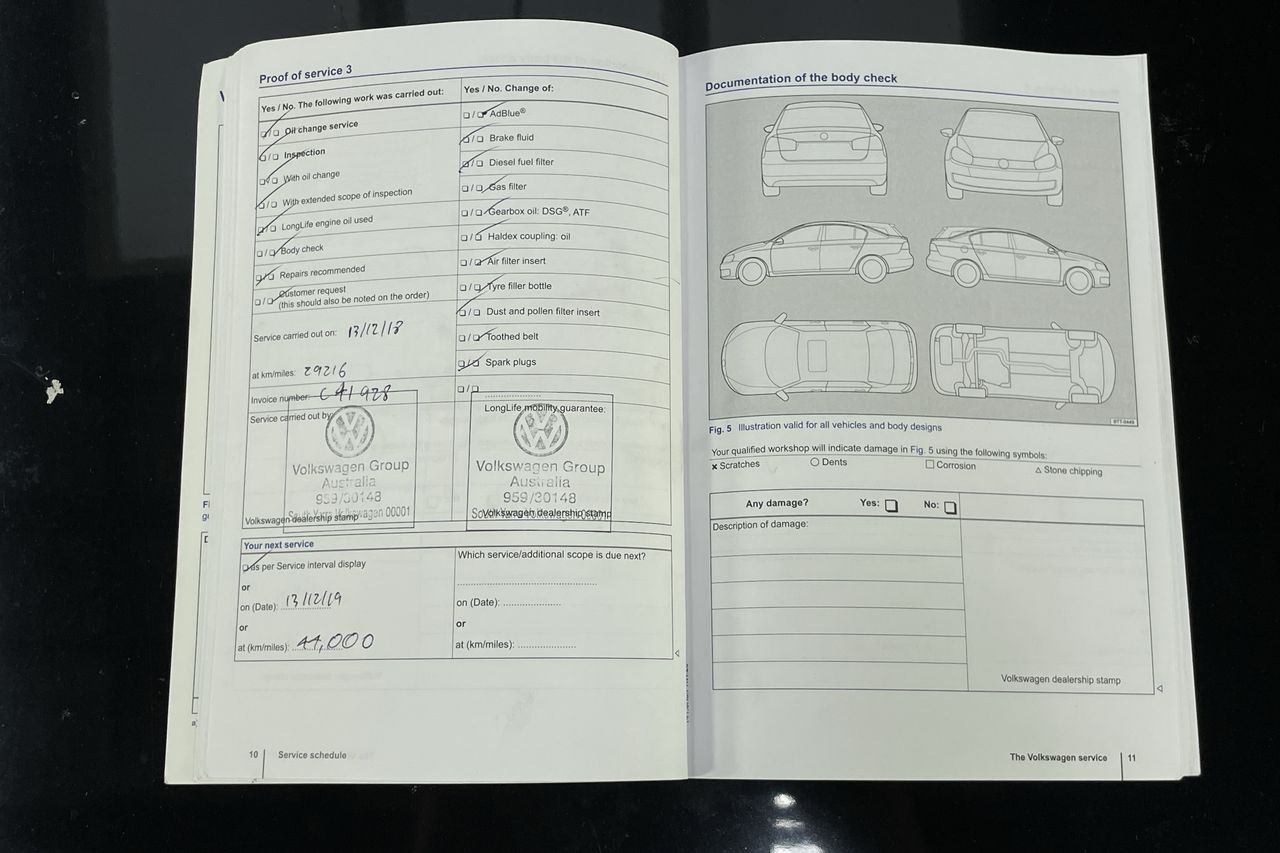 Proof of service 3
Yes / No. The following work was carried out:
❑ / ❑ Oil change service
❑ / ❑ Inspection
❑ / ❑ With oil change
❑ / ❑ With extended scope of inspection
❑ / ❑ LongLife engine oil used
❑ / ❑ Body check
❑ / ❑ Repairs recommended
❑ / ❑ Customer request
(this should also be noted on the order)
Service carried out on: 13/12/18
at km/miles: 29216
Invoice number: C41928
Service carried out by:
Volkswagen Group
Australia
959/30148
South Yarra Volkswagen 00001
Volkswagen dealership stamp
Yes / No. Change of:
❑ / ❑ AdBlue®
❑ / ❑ Brake fluid
❑ / ❑ Diesel fuel filter
❑ / ❑ Gas filter
❑ / ❑ Gearbox oil: DSG®, ATF
❑ / ❑ Haldex coupling: oil
❑ / ❑ Air filter insert
❑ / ❑ Tyre filler bottle
❑ / ❑ Dust and pollen filter insert
❑ / ❑ Toothed belt
❑ / ❑ Spark plugs
❑ / ❑ ....................
LongLife mobility guarantee:
Volkswagen Group
Australia
959/30148
Volkswagen dealership stamp
Your next service
❑ as per Service interval display
or
on (Date): 13/12/19
or
at (km/miles): 44,000
Which service/additional scope is due next?
on (Date): ....................
or
at (km/miles): ....................
10 Service schedule
Documentation of the body check
BTT-0449
Fig. 5 Illustration valid for all vehicles and body designs
Your qualified workshop will indicate damage in Fig. 5 using the following symbols:
× Scratches ○ Dents □ Corrosion △ Stone chipping
Any damage? Yes: ❑ No: ❑
Description of damage:
Volkswagen dealership stamp
The Volkswagen service 11